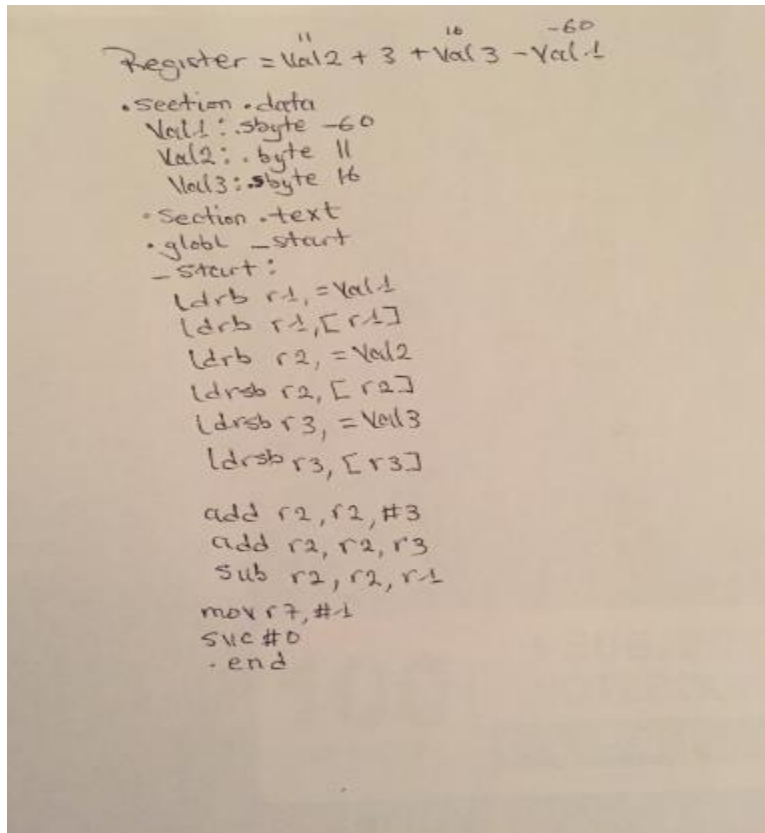 11 16 -60
Register = Val2 + 3 + Val3 - Val1
.section .data
Val1: .sbyte -60
Val2: .byte 11
Val3: .sbyte 16
.section .text
.globl _start
_start:
ldrb r1, =Val1
ldrb r1, [r1]
ldrb r2, =Val2
ldrsb r2, [r2]
ldrsb r3, =Val3
ldrsb r3, [r3]
add r2, r2, #3
add r2, r2, r3
sub r2, r2, r1
mov r7, #1
svc #0
.end